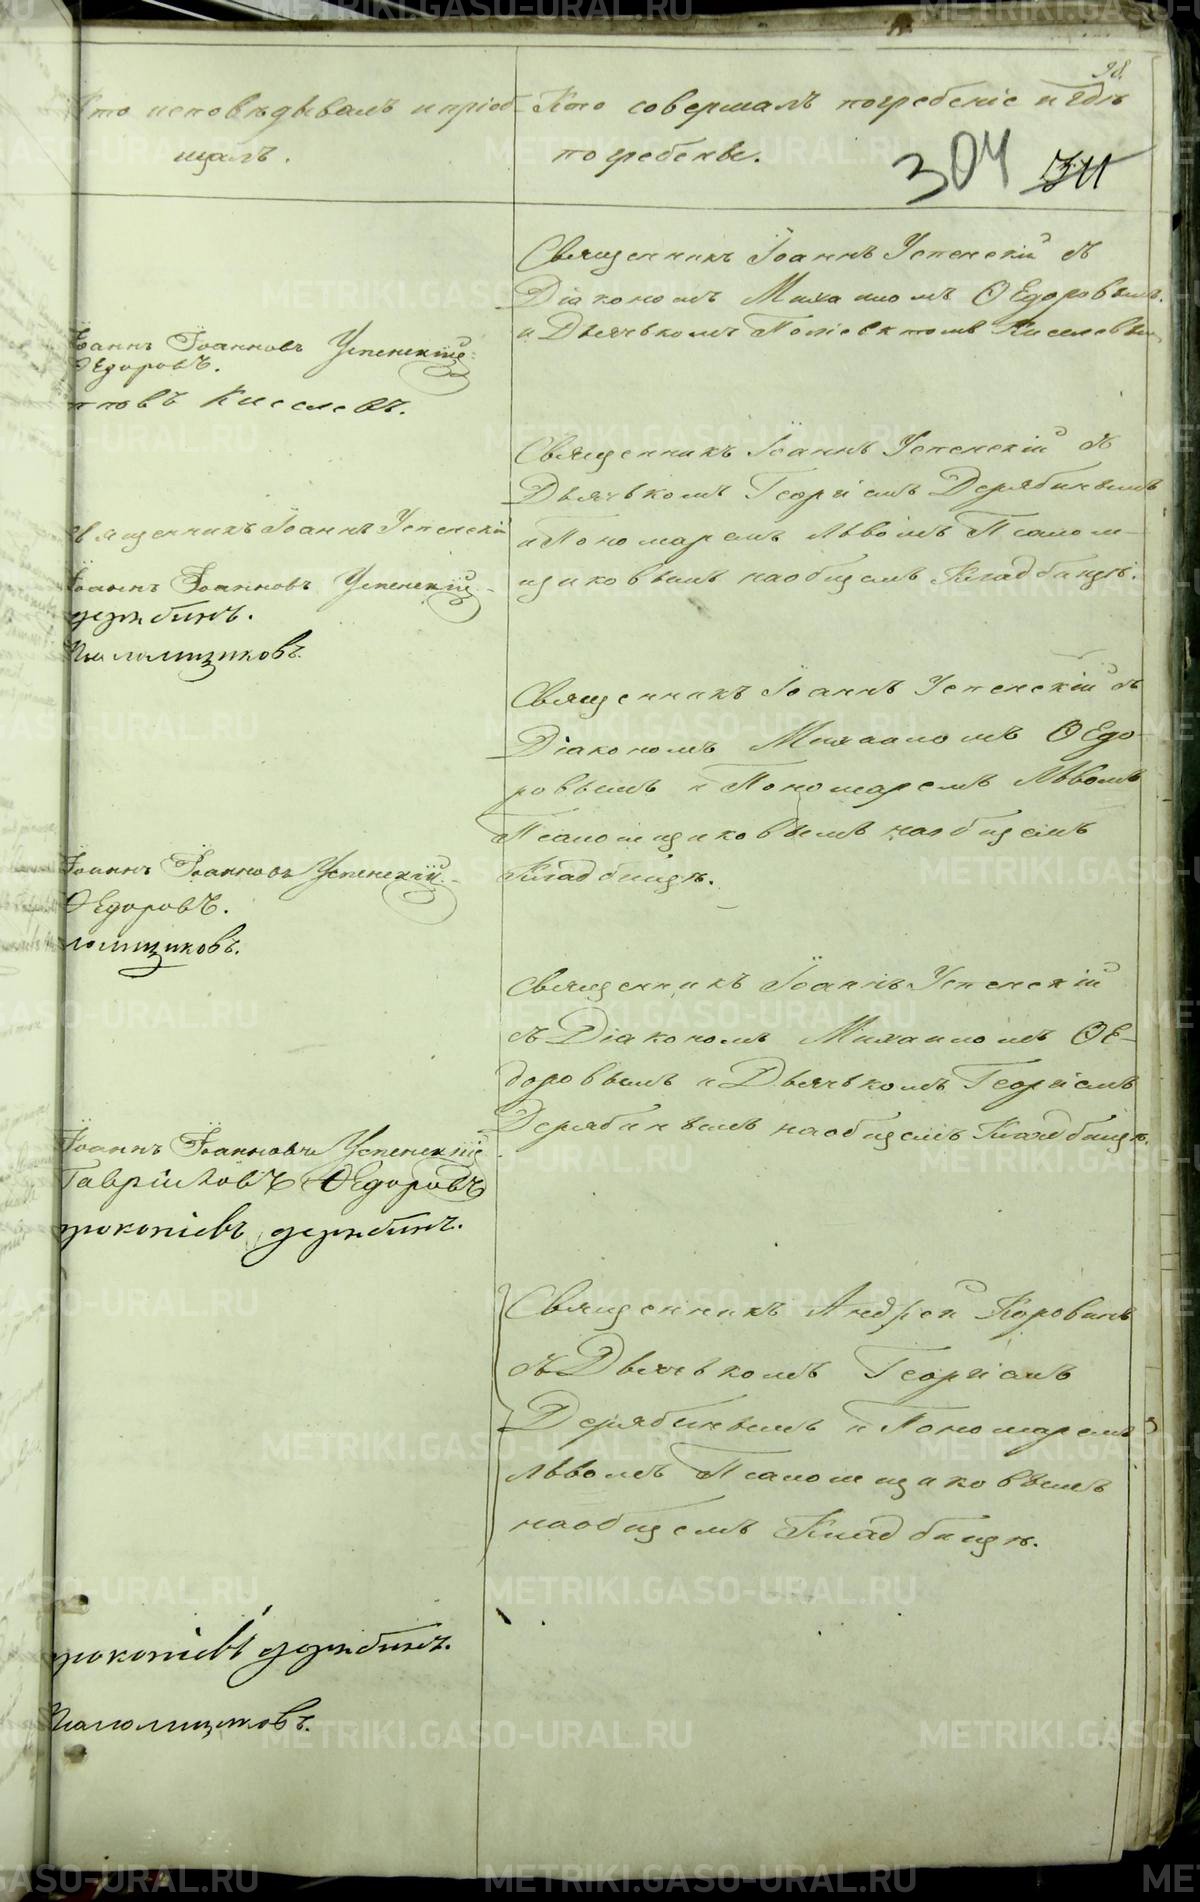 98.
Кто исповѣдывалъ и приоб
щалъ.
Кто совершалъ погребеніе и гдѣ
погребены.
304 311
Священникъ Іоаннъ Успенскій съ
Діакономъ Михаиломъ Ѳедоровымъ
и Дьячькомъ Полиевктомъ Киселевым
Іоаннъ Іоанновъ Успенскій
Ѳедоровъ.
Киселевъ.
Священникъ Іоаннъ Успенскій съ
Дьячькомъ Георгіемъ Дерябинымъ
и Пономаремъ Львомъ Псалом-
щиковымъ на общемъ Кладбищѣ.
Священникъ Іоаннъ Успенскій
Іоаннъ Іоанновъ Успенскій
дерябинъ.
Псаломщиковъ.
Священникъ Іоаннъ Успенскій съ
Діакономъ Михаиломъ Ѳедо-
ровымъ и Пономаремъ Львомъ
Псаломщиковымъ на общемъ
Кладбищѣ.
Іоаннъ Іоанновъ Успенскій
Ѳедоровъ.
ломщиковъ.
Священникъ Іоаннъ Успенскій
съ Діакономъ Михаиломъ Ѳе-
доровымъ и Дьячькомъ Георгіемъ
Дерябинымъ на общемъ Кладбищѣ.
Іоаннъ Іоанновъ Успенскій
Гавриловъ Ѳедоровъ
прокопіевъ дерябинъ.
Священникъ Андрей Коровинъ
съ Дьячькомъ Георгіемъ
Дерябинымъ и Пономаремъ
Львомъ Псаломщиковымъ
на общемъ Кладбищѣ.
прокопіевъ дерябинъ.
Псаломщиковъ.
METRIKI.GASO-URAL.RU